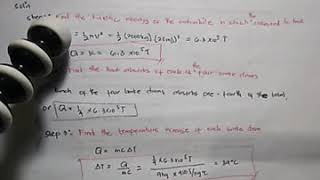 Soln
Step 1: Find the kinetic energy of the automobile in which converted to heat
= ½mv² = ½ (2000kg)(25m/s)² = 6.3 x 10⁵J
Q = K = 6.3 x 10⁵J
Find the heat absorbs of each of the four brake drums
Each of the four brake drums absorbs one-fourth of the total,
or Q = ¼ x 6.3 x 10⁵J
Step 3: Find the temperature increase of each brake drum
Q = mcΔT
ΔT = Q/mc = ¼ x 6.3 x 10⁵J / 9kg x